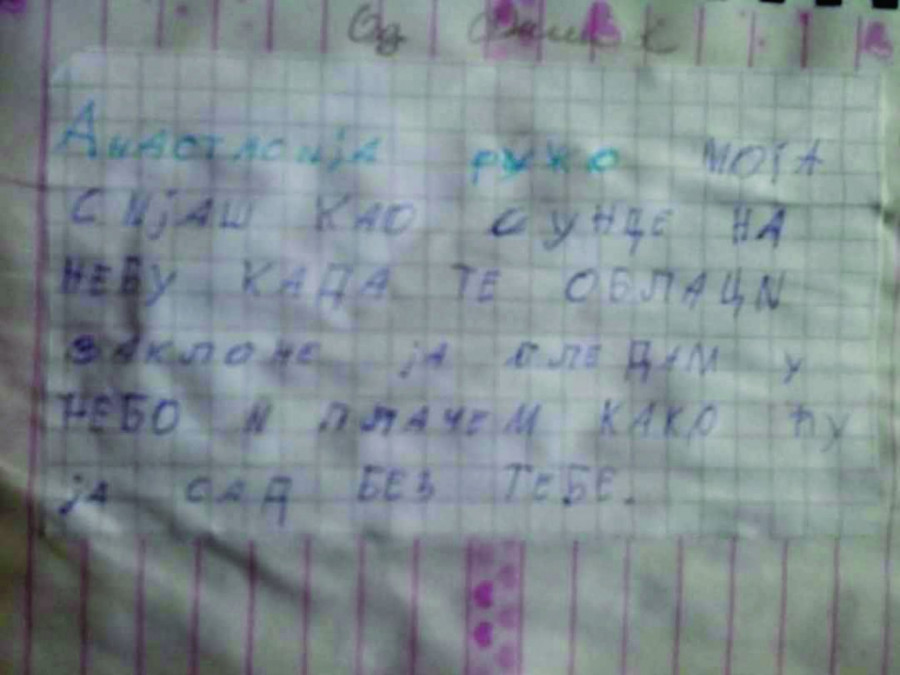 Од
Анастасија ружо моја
СИјАШ КАО СУНЦЕ НА
НЕБУ КАДА ТЕ ОБЛАЦИ
ЗАКЛОНЕ јА ГЛЕДАМ У
НЕБО И ПЛАЧЕМ КАКО ЋУ
јА САД БЕЗ ТЕБЕ.